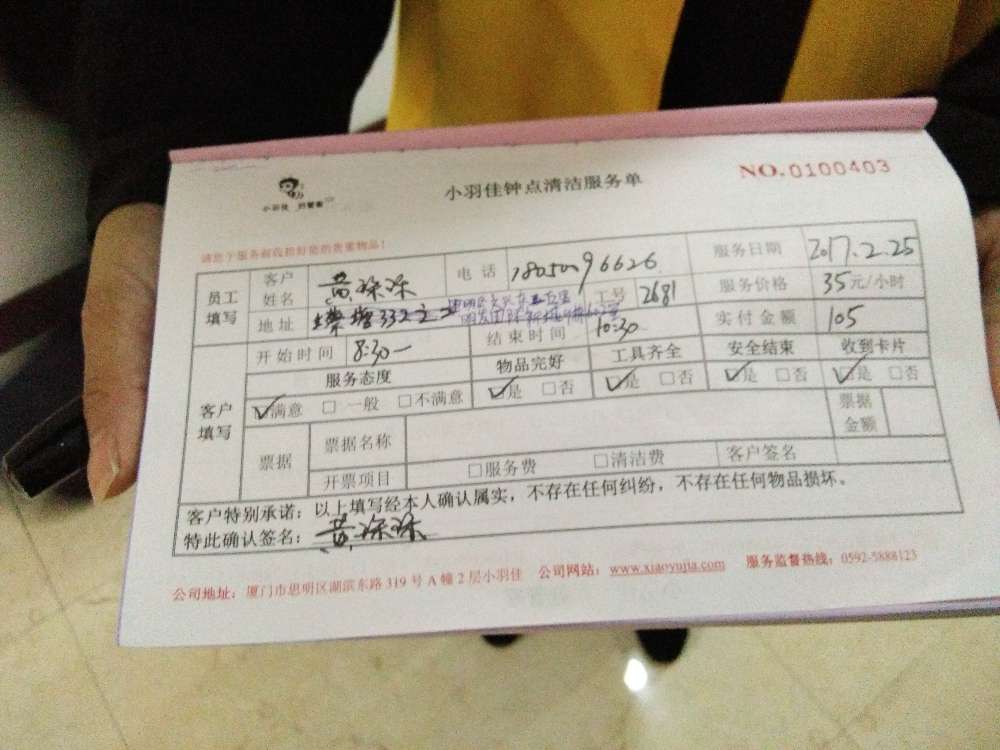 小羽佳
小羽佳钟点清洁服务单
NO.0100403
请您于服务前收拾好您的贵重物品!
员工填写 客户姓名 黄琼琼 电话 服务日期 2017.2.25
地址 332 工号 2681 服务价格 35元/小时
开始时间 8:30 结束时间 10:30 实付金额 105
服务态度 物品完好 工具齐全 安全结束 收到卡片
客户填写 ☑满意 □一般 □不满意 ☑是 □否 ☑是 □否 ☑是 □否 ☑是 □否
票据 票据名称 票据金额
开票项目 □服务费 □清洁费 客户签名
客户特别承诺:以上填写经本人确认属实,不存在任何纠纷,不存在任何物品损坏。
特此确认签名:黄琼琼
公司地址:厦门市思明区湖滨东路319号A幢2层小羽佳 公司网站:www.xiaoyujia.com 服务监督热线:0592-5888123